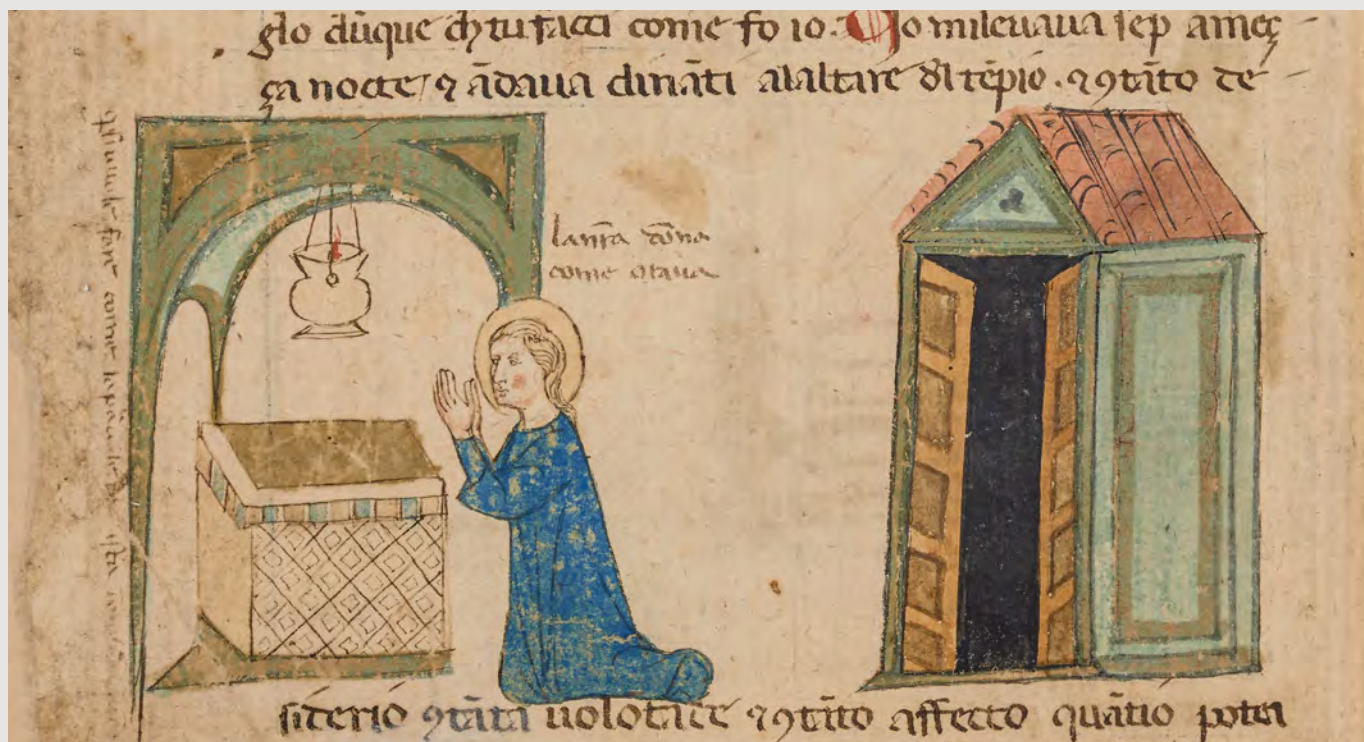 glo dūque ch tu facci come fo io. Io milevava sēp ameç
ça nocte / ⁊ ādava dināti alaltare dl tēpio. ⁊ ꝯtāto de
la nr̄a dōna
come orava
siderio ꝯtāta volōtade ⁊ ꝯtāto affecto quātio potea